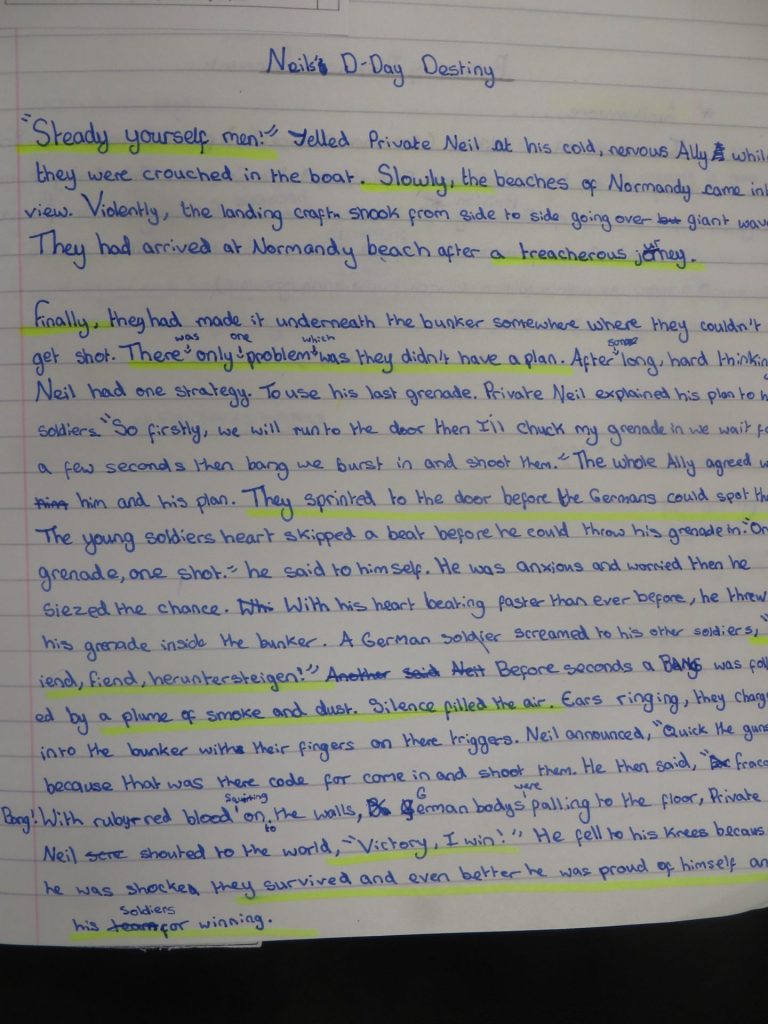 Neil's D-Day Destiny
"Steady yourself men!" Yelled Private Neil at his cold, nervous Ally whil
they were crouched in the boat. Slowly, the beaches of Normandy came in
view. Violently, the landing craft shook from side to side going over giant wav
They had arrived at Normandy beach after a treacherous journey.
Finally, they had made it underneath the bunker somewhere where they couldn't
was one which some
get shot. There only problem was they didn't have a plan. After long, hard thinkin
Neil had one strategy. To use his last grenade. Private Neil explained his plan to h
soldiers. "So firstly, we will run to the door then I'll chuck my grenade in we wait f
a few seconds then bang we burst in and shoot them." The whole Ally agreed w
him and his plan. They sprinted to the door before the Germans could spot th
The young soldiers heart skipped a beat before he could throw his grenade in. "On
grenade, one shot." he said to himself. He was anxious and worried then he
siezed the chance. With his heart beating faster than ever before, he threw
his grenade inside the bunker. A German soldier screamed to his other soldiers, "
iend, fiend, heruntersteigen!" Another said Before seconds a BANG was foll
ed by a plume of smoke and dust. Silence filled the air. Ears ringing, they charg
into the bunker with their fingers on there triggers. Neil announced, "Quick the gun
because that was there code for come in and shoot them. He then said, "
squirting G were
Bang! With ruby-red blood on the walls, German bodys falling to the floor, Private
to
Neil shouted to the world, "Victory, I win!" He fell to his knees becaus
he was shocked they survived and even better he was proud of himself an
Soldiers
his team for winning.